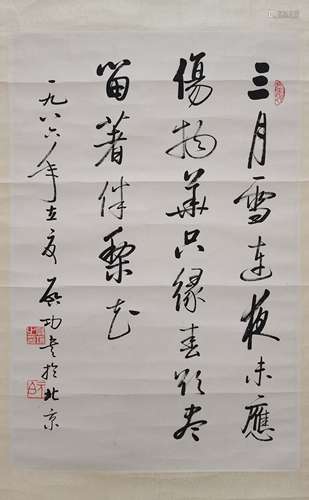 三月雪连夜未應
傷物華只緣春欲盡
留著伴梨花
一九八六年立夏 啟功書於北京